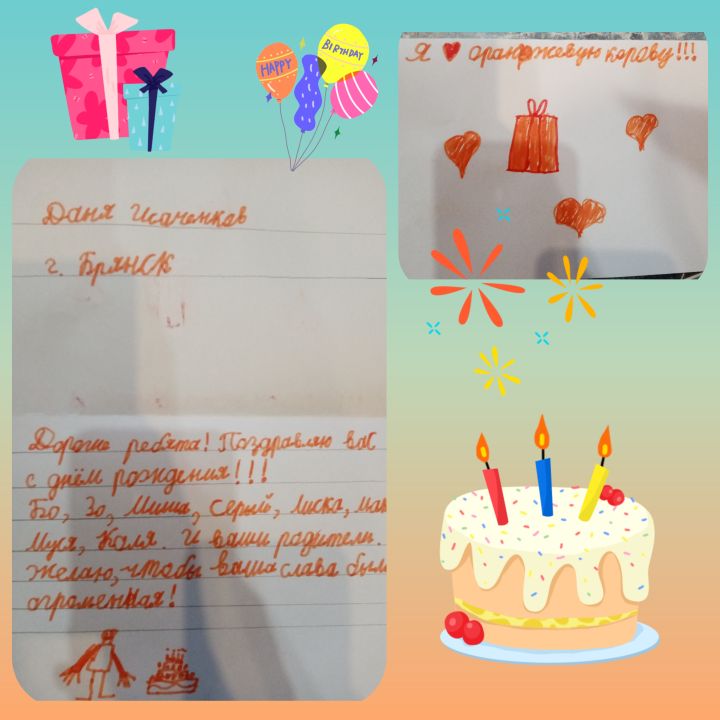 HAPPY
BIRTHDAY
Я ❤ оранжевую корову!!!
Даня Исаченков
г. Брянск
Дорогие ребята! Поздравляю вас
с днём рождения!!!
Бо, Зо, Миша, Серый, Лиска,
Муся, Коля. И ваши родители.
Желаю, чтобы ваша слава был
огроменная!